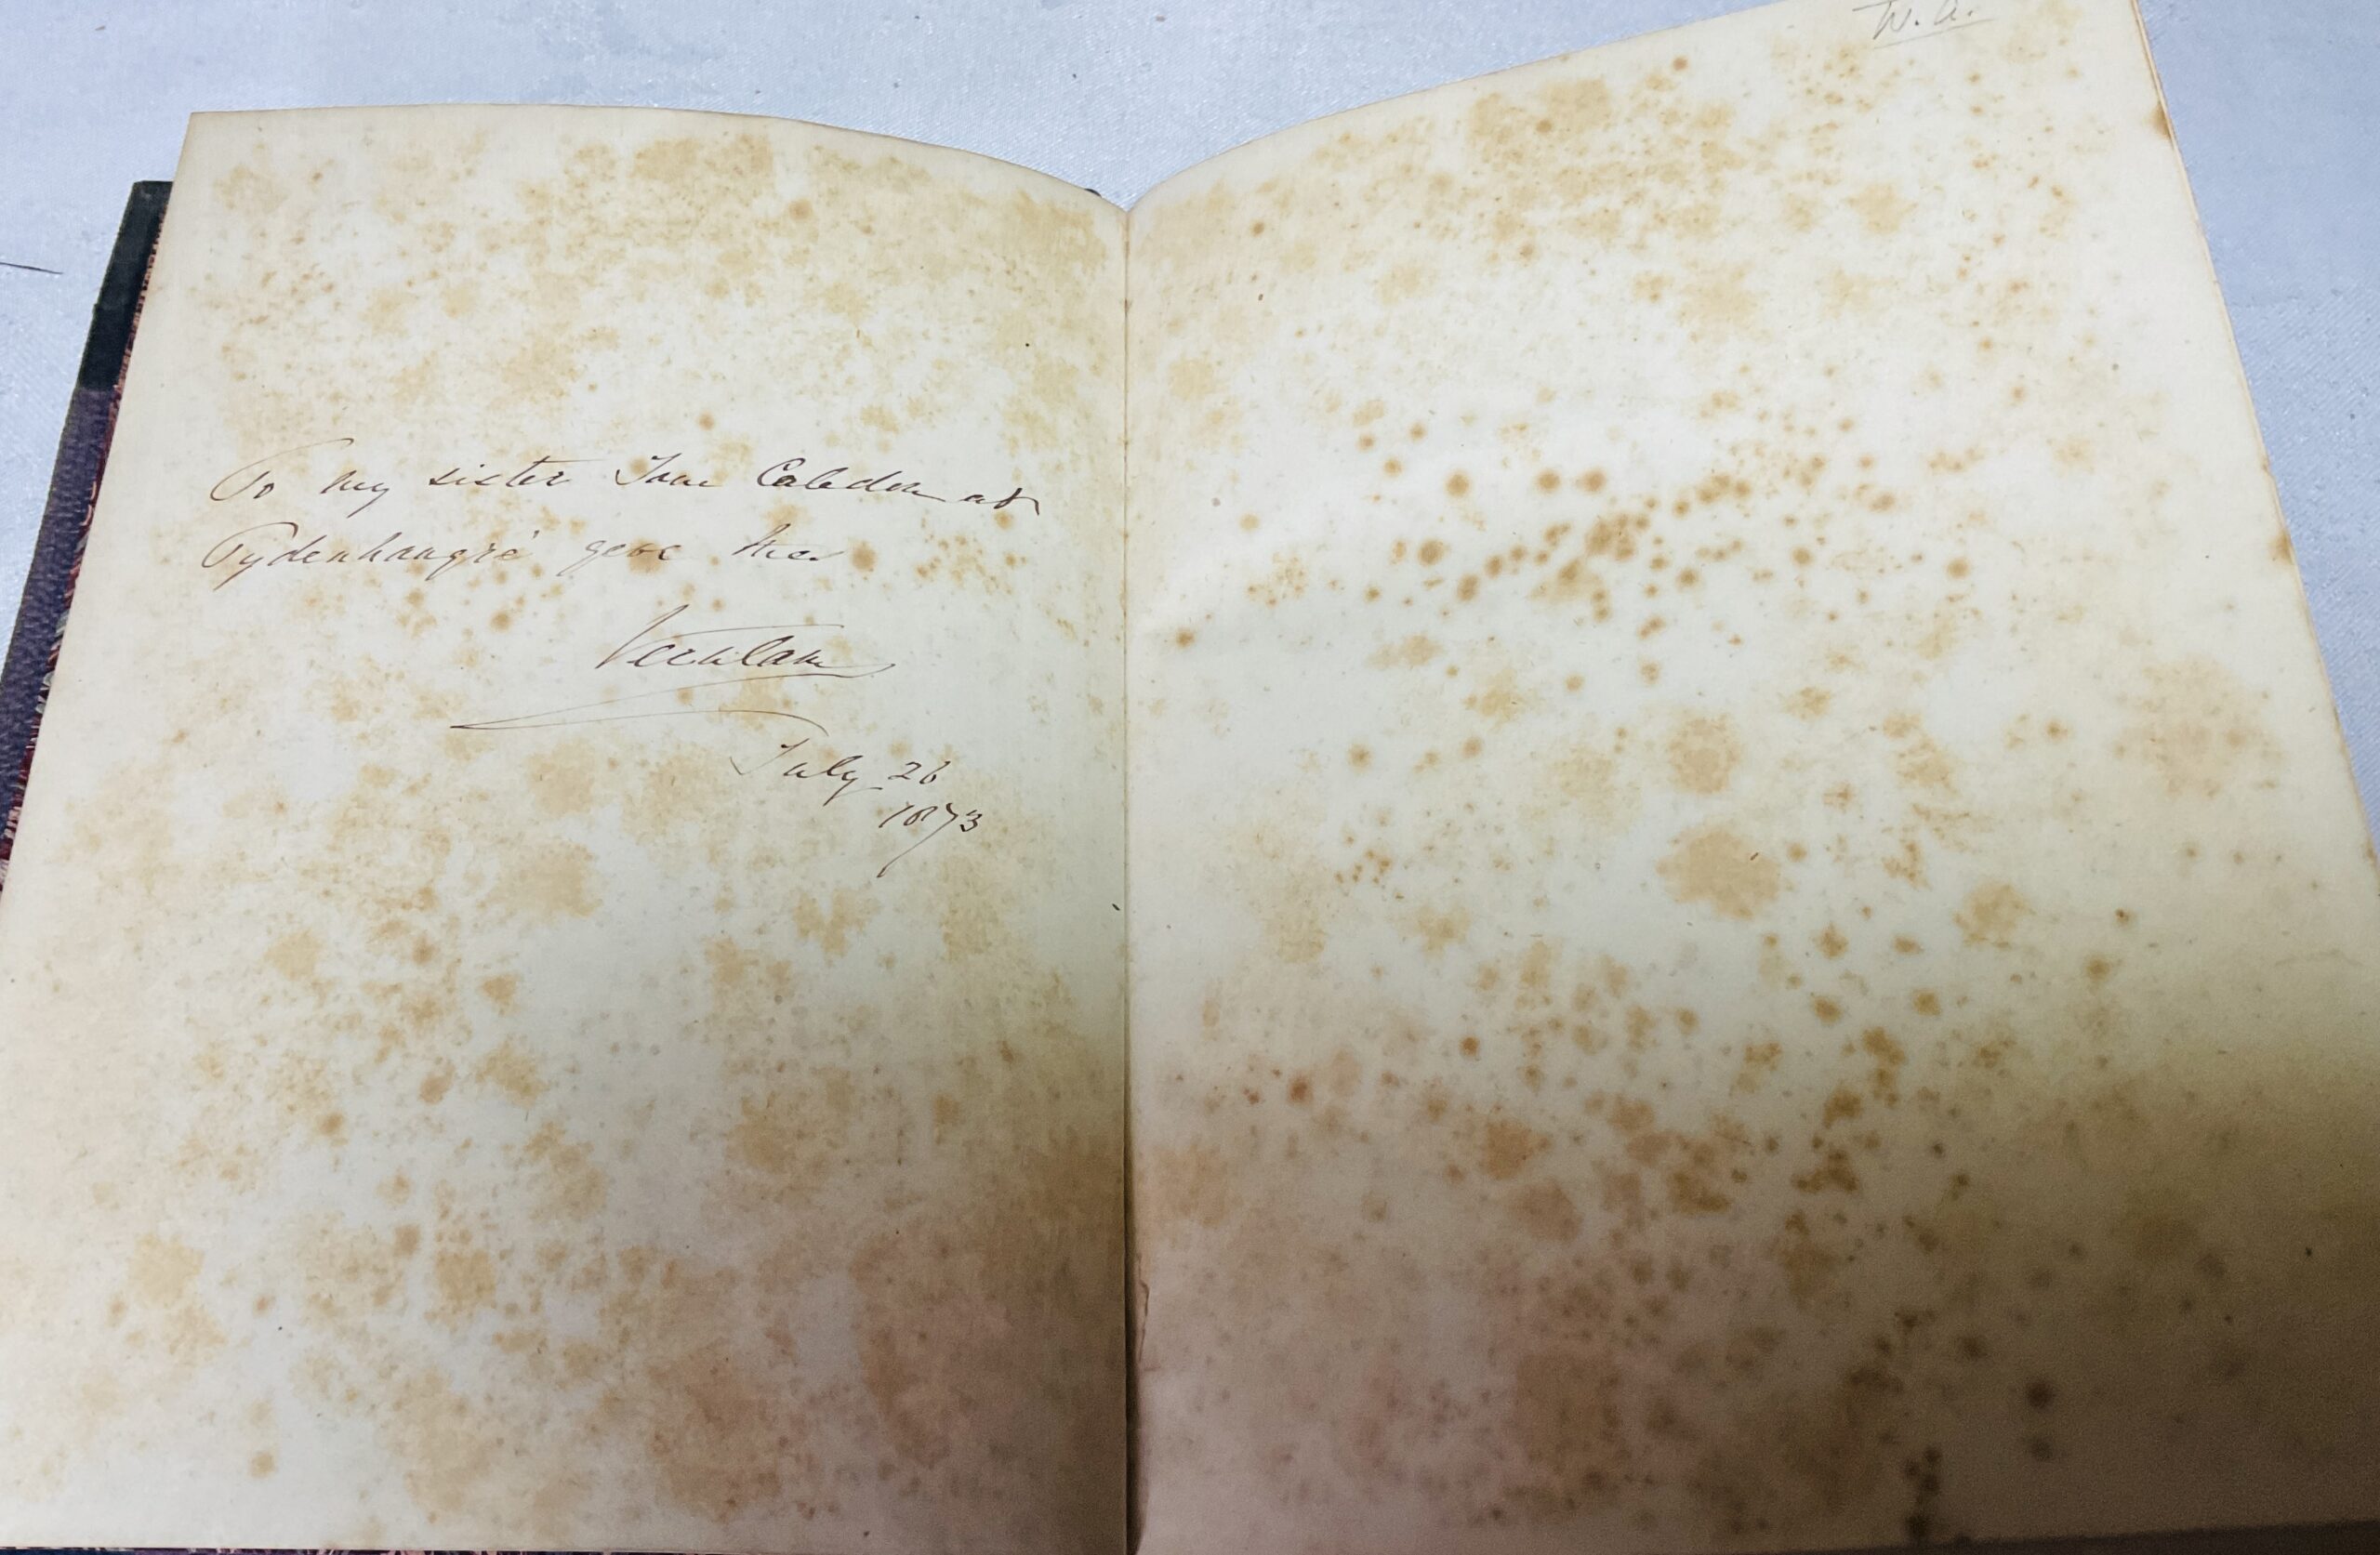 W. A.
To my sister Jane Caledon at
Tydenhangre gave this
Verulam
July 26
1873